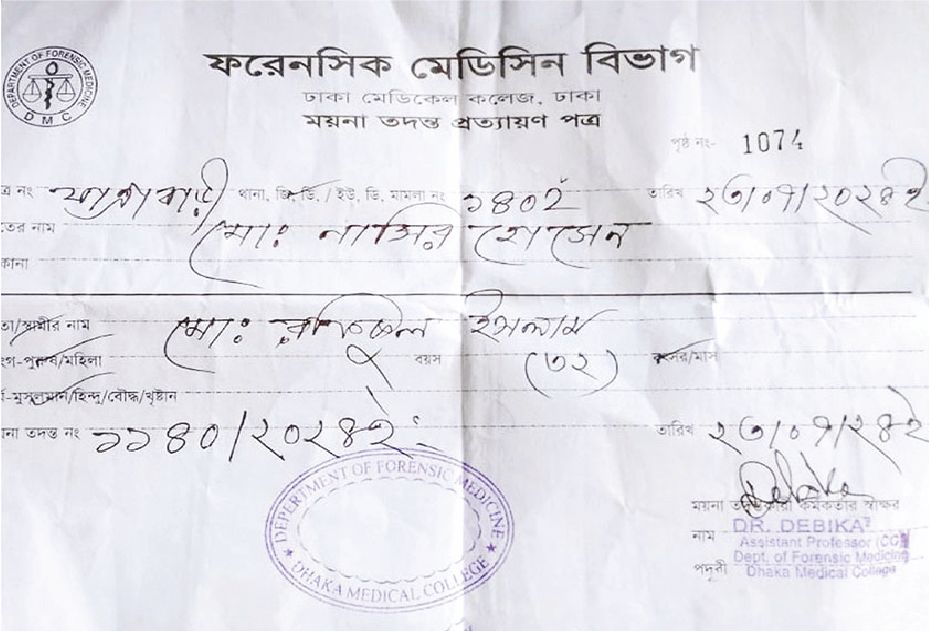 DEPARTMENT OF FORENSIC MEDICINE
D M C
ফরেনসিক মেডিসিন বিভাগ
ঢাকা মেডিকেল কলেজ, ঢাকা
ময়না তদন্ত প্রত্যায়ণ পত্র
পৃষ্ঠ নং- 1074
ত্র নং যাত্রাবাড়ী থানা, জি, ডি, / ইউ, ডি, মামলা নং ১৪০২ তারিখ ২৩/০৭/২০২৪ইং
তের নাম মোঃ নাসির হোসেন
কানা
তা/স্বামীর নাম মোঃ রফিকুল ইসলাম
ংগ-পুরুষ/মহিলা বয়স (৩২) বৎসর/মাস
র্ম-মুসলমান/হিন্দু/বৌদ্ধ/খৃষ্টান
না তদন্ত নং ১১৪০/২০২৪ইং তারিখ ২৩/০৭/২৪ইং
DEPERTMENT OF FORENSIC MEDICINE
DHAKA MEDICAL COLLEGE
Debika
ময়না তদন্তকারী কর্মকর্তার স্বাক্ষর
নাম DR. DEBIKA
Assistant Professor (CC)
Dept. of Forensic Medicine
পদবী Dhaka Medical College